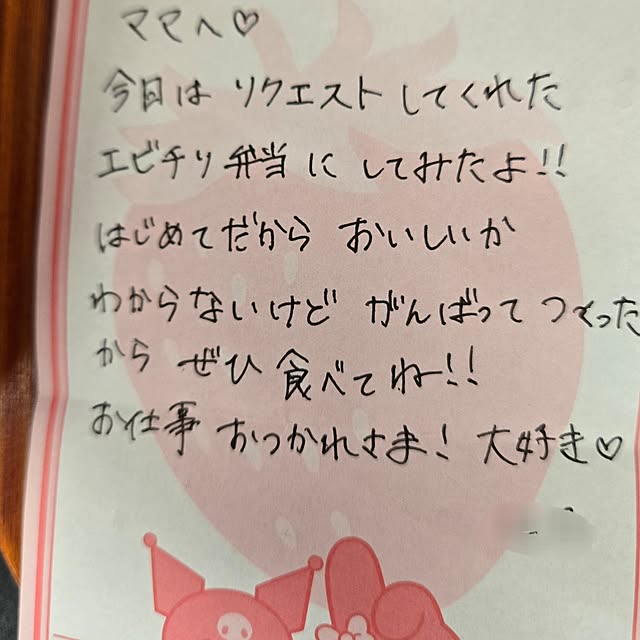 ママへ♡
今日は リクエスト してくれた
エビチリ 弁当 に してみたよ!!
はじめてだから おいしいか
わからないけど がんばって つくった
から ぜひ 食べてね!!
お仕事 おつかれさま! 大好き♡